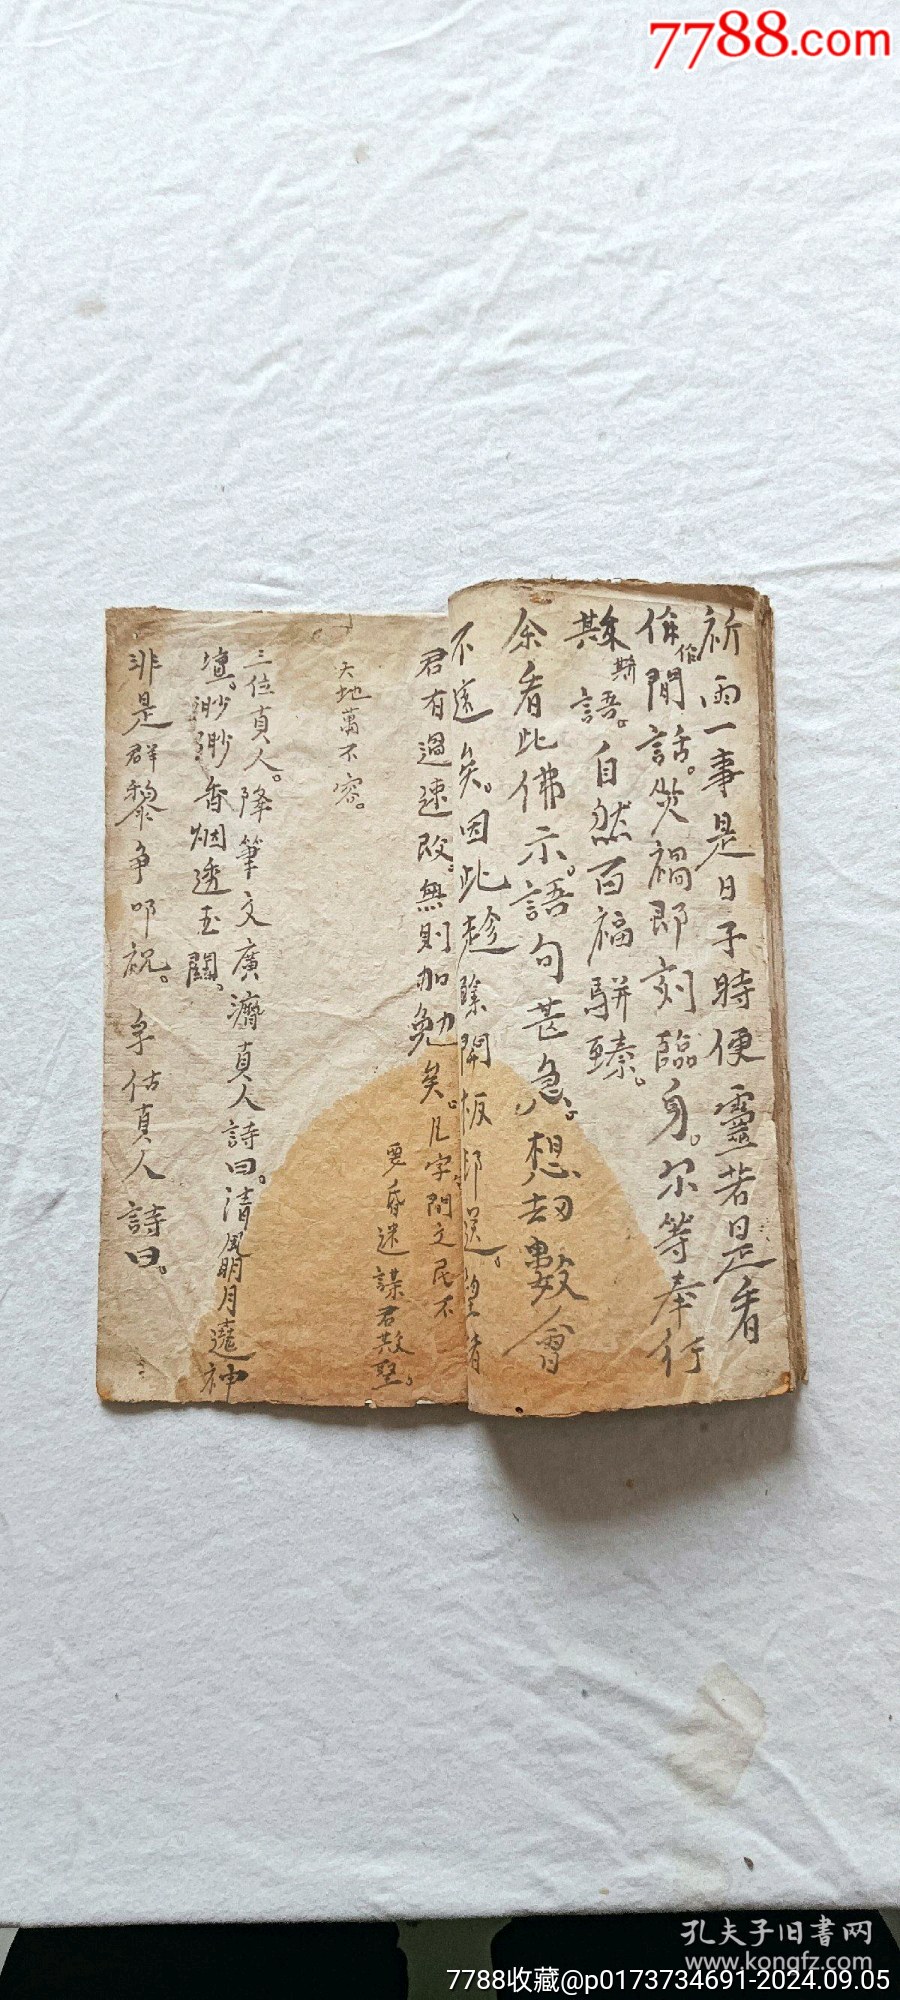 7788.com
祈雨一事是日子時便靈若是看
作閒話災禍即刻臨身。尔等奉行
斯語。自然百福駢臻。
余看此佛示。語句甚急。想劫數會
不遠矣。因此趁除開板印送。望看
君有過速改。無則加勉矣。凡字間文民不
要昏迷謀君欺聖。
天地萬不容。
三位真人。降筆文廣濟真人詩曰。清風明月遶神
壇。渺渺香烟透玉關。
非是群黎争叩祝。 真人詩曰。
孔夫子旧書网
www.kongfz.com
7788收藏@p0173734691-2024.09.05